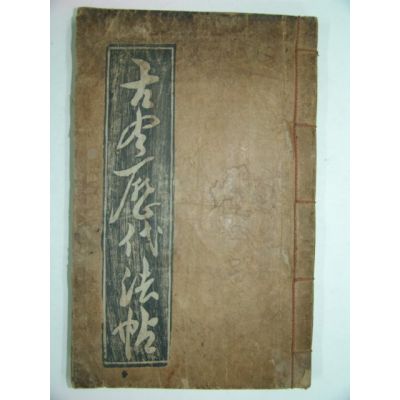 古今歷代法帖